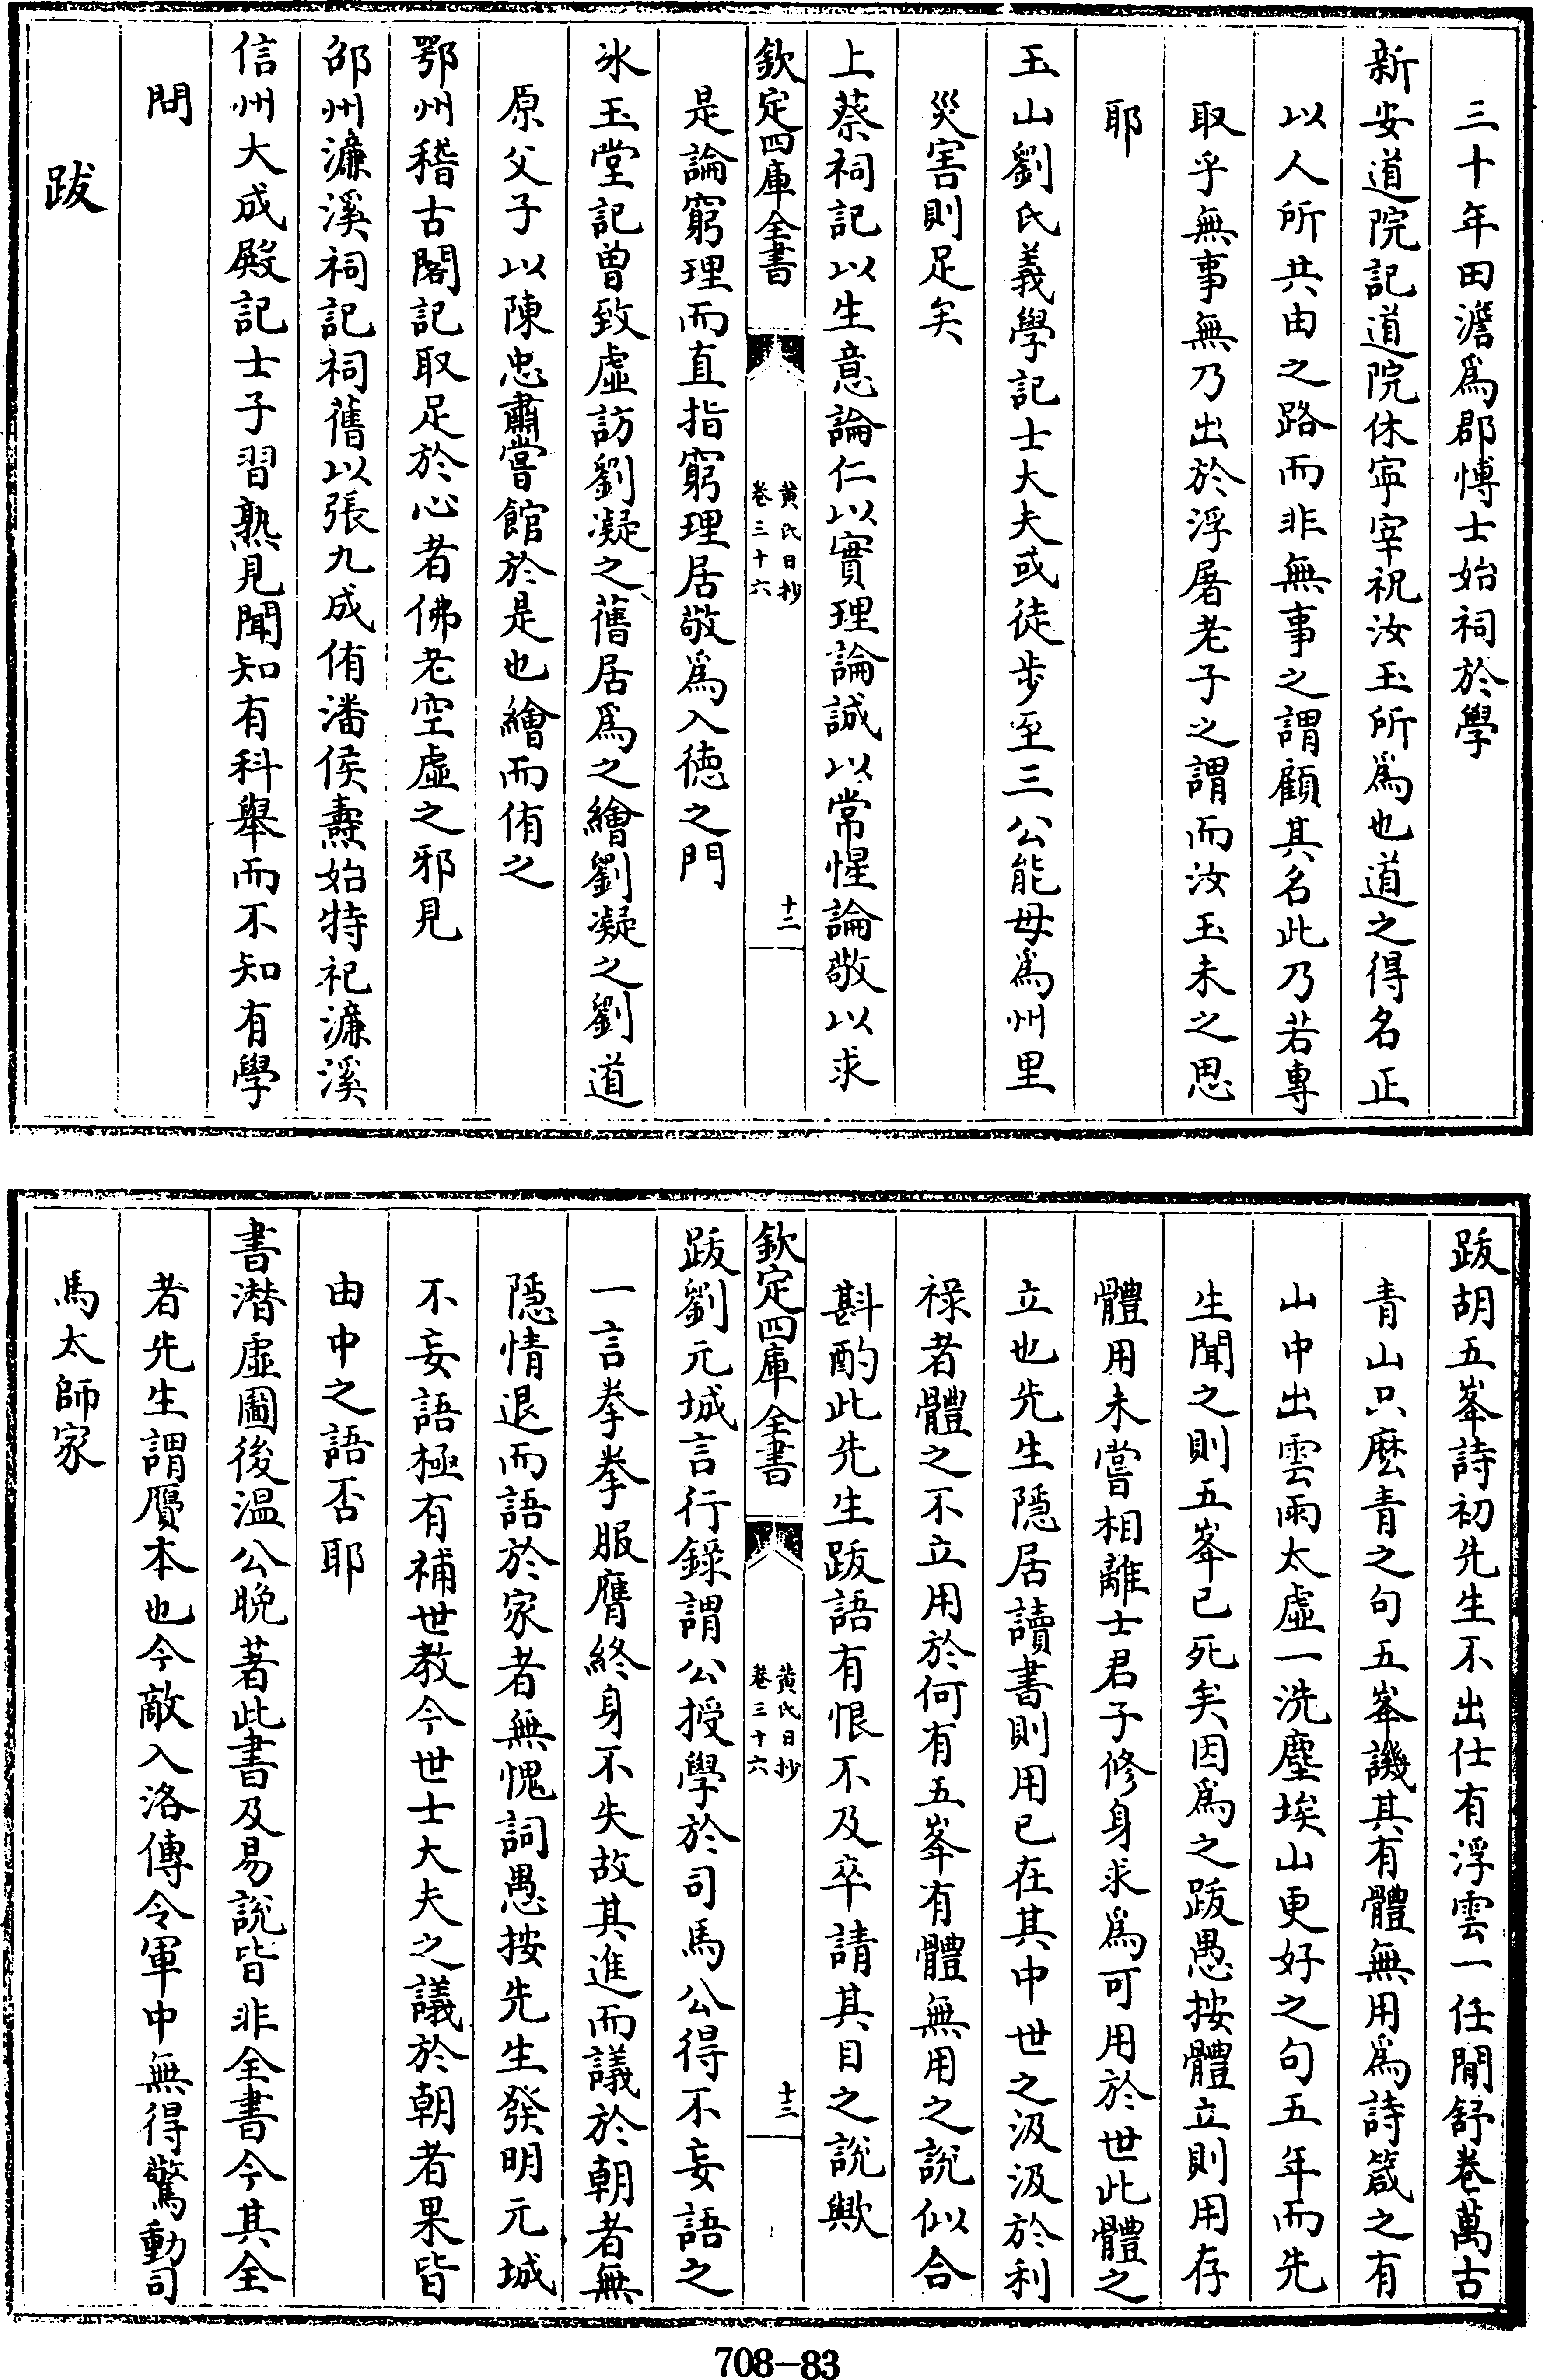 三十年田澹為郡博士始祠於學
新安道院記道院休寧宰祝汝玉所為也道之得名正
以人所共由之路而非無事之謂顧其名此乃若專
取乎無事無乃出於浮屠老子之謂而汝玉未之思
耶
玉山劉氏義學記士大夫或徒步至三公能毋為州里
災害則足矣
上蔡祠記以生意論仁以實理論誠以常惺論敬以求
欽定四庫全書
黃氏日抄
卷三十六
十二
是論窮理而直指窮理居敬為入徳之門
氷玉堂記曽致虛訪劉凝之舊居為之繪劉凝之劉道
原父子以陳忠肅嘗館於是也繪而侑之
鄂州稽古閣記取足於心者佛老空虛之邪見
邵州濂溪祠記祠舊以張九成侑潘侯燾始特祀濂溪
信州大成殿記士子習熟見聞知有科舉而不知有學
問
跋
跋胡五峯詩初先生不出仕有浮雲一任閒舒卷萬古
青山只麽青之句五峯譏其有體無用為詩箴之有
山中出雲雨太虛一洗塵埃山更好之句五年而先
生聞之則五峯已死矣因為之跋愚按體立則用存
體用未嘗相離士君子修身求為可用於世此體之
立也先生隠居讀書則用已在其中世之汲汲於利
禄者體之不立用於何有五峯有體無用之說似合
斟酌此先生跋語有恨不及卒請其目之說歟
欽定四庫全書
黃氏日抄
卷三十六
十三
跋劉元城言行錄謂公授學於司馬公得不妄語之
一言拳拳服膺終身不失故其進而議於朝者無
隠情退而語於家者無愧詞愚按先生發明元城
不妄語極有補世教今世士大夫之議於朝者果皆
由中之語否耶
書潛虛圖後温公晚著此書及易說皆非全書今其全
者先生謂贋本也今敵入洛傳令軍中無得驚動司
馬太師家
708-83